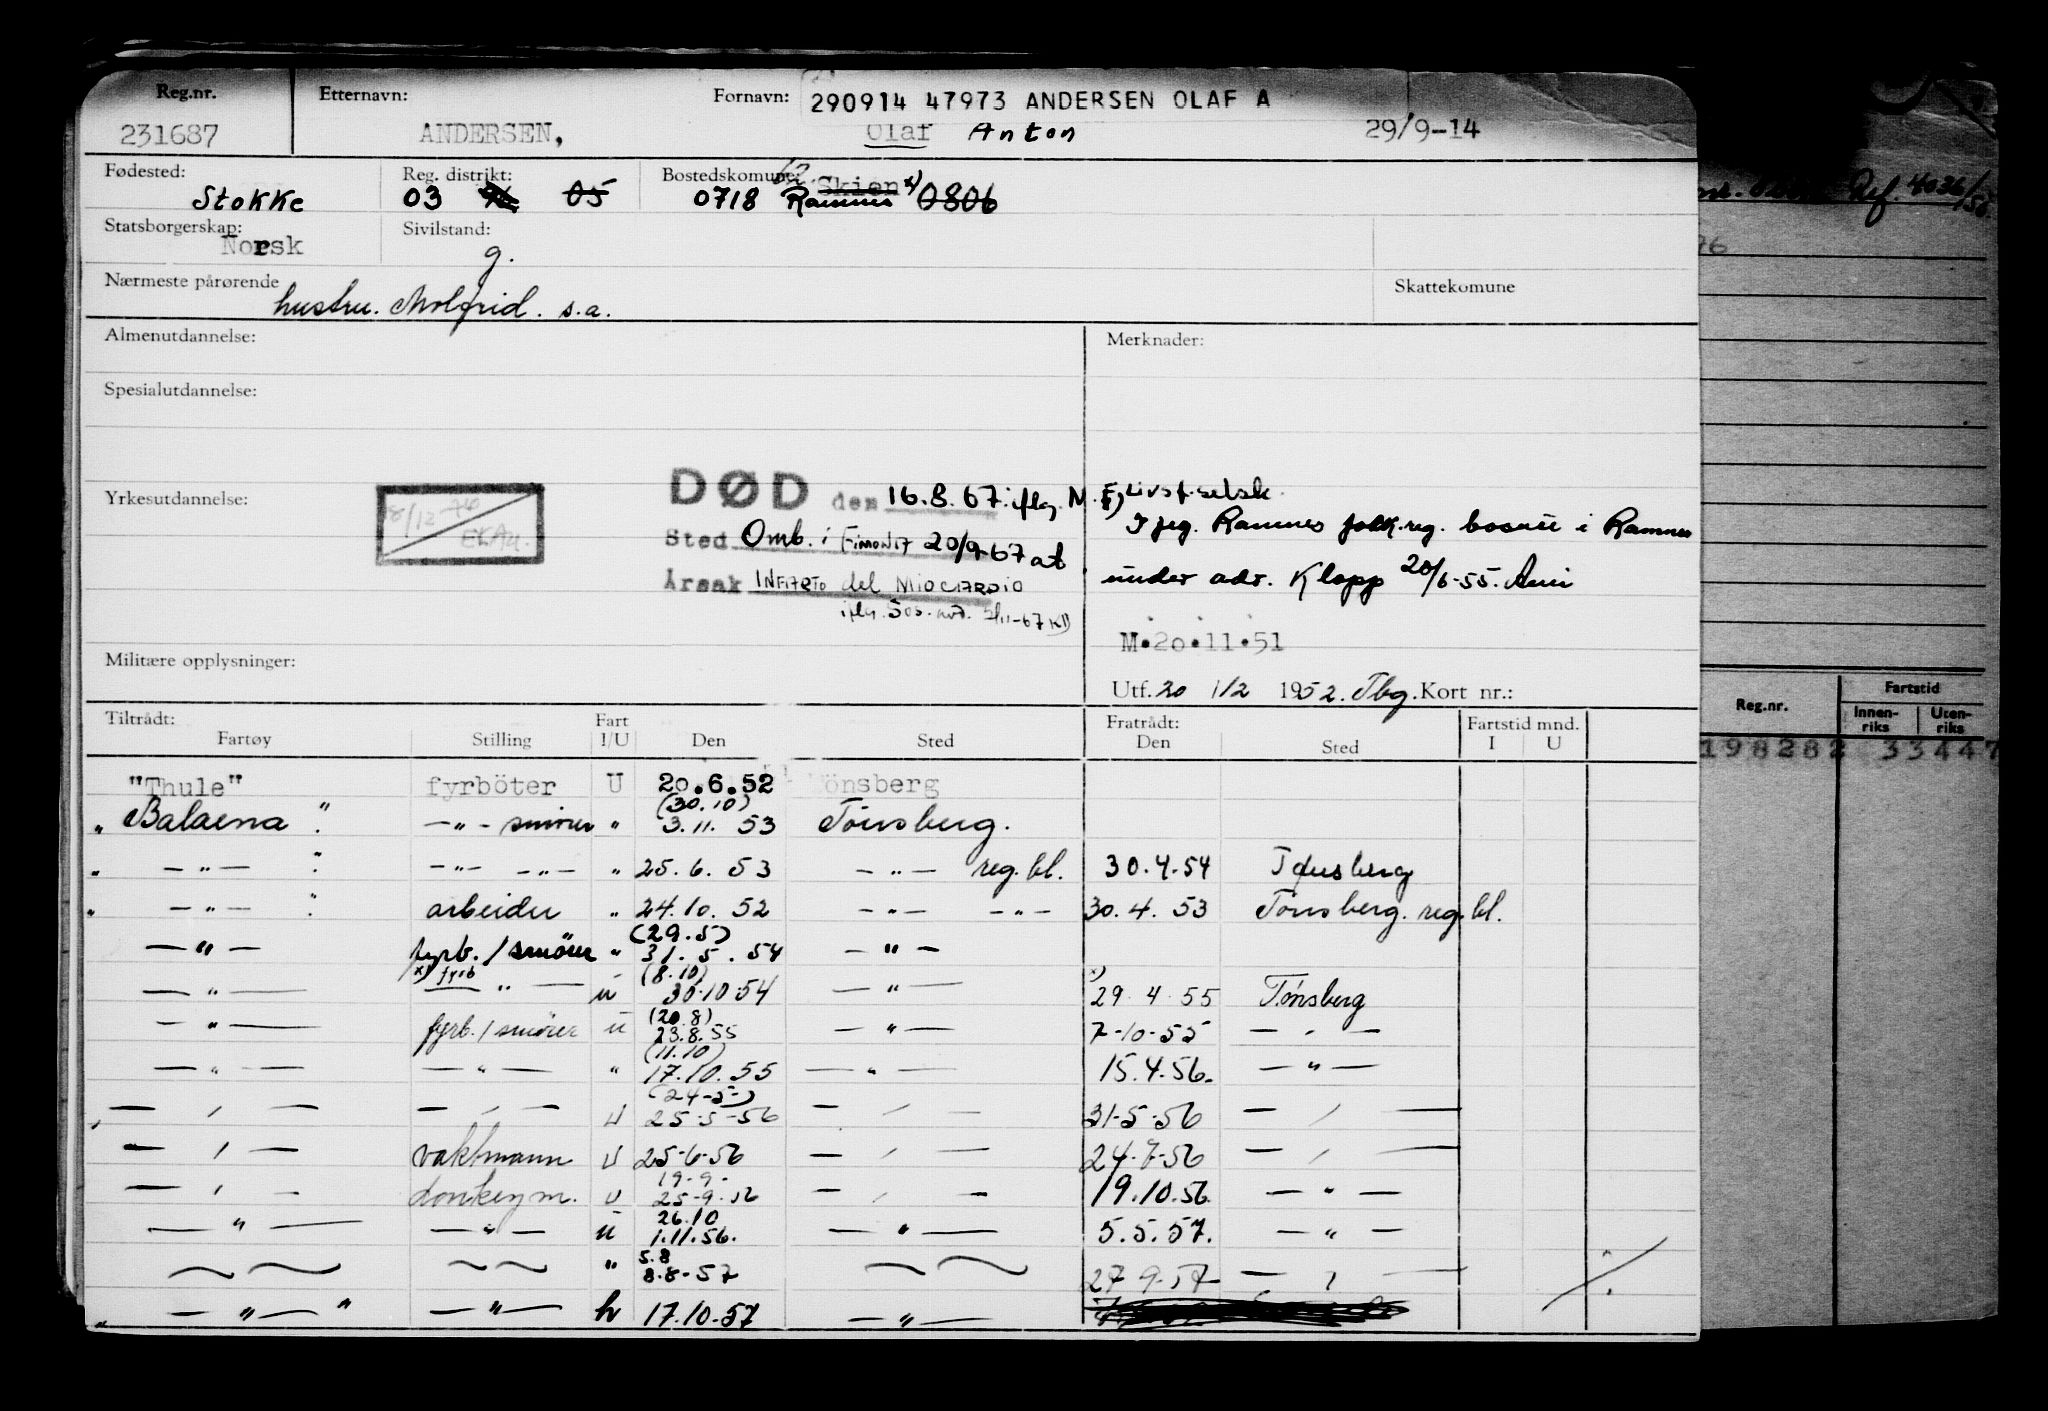 Reg.nr. Etternavn: Fornavn: 290914 47973 ANDERSEN OLAF A
231687 ANDERSEN, Olaf Anton 29/9-14
Fødested: Reg. distrikt: Bostedskomune:
Stokke 03 05 0718 Skien Ramnes x) 0806
Statsborgerskap: Sivilstand:
Norsk g.
Nærmeste pårørende Skattekomune
hustru. s.a.
Almenutdannelse: Merknader:
Spesialutdannelse:
Yrkesutdannelse:
8/12-76
DØD den 16.8.67. iflg. N. Livsf.selsk.
Sted Omb. i 20/9-67 at
Årsak INFARTO del MIOCARDIO
iflg. Sos. 2/11-67
I flg. Ramnes folk.reg. bosatt i Ramnes
under adr. Klopp 20/6-55.
M.20.11.51
Militære opplysninger:
Utf. 20 1/2 1952. Tbg. Kort nr.:
Tiltrådt: Fart Fratrådt: Fartstid mnd.
Fartøy Stilling I/U Den Sted Den Sted I U
"Thule" fyrböter U 20.6.52 Tönsberg
(30.10)
" Balaena " -"- smører " 3.11. 53 Tønsberg.
" -"- " -"- -"- " 25.6. 53 -"- reg.bl. 30.4.54 Tønsberg
" -"- " arbeider " 24.10. 52 -"- -"- 30.4. 53 Tønsberg. reg.bl.
(29.5)
-"- fyrb./smører " 31.5.54 -"-
x) fyrb (8.10) x)
-"- -"- u 30.10 54 -"- 29.4 55 Tønsberg
(20.8)
-"- fyrb./smører u 23.8.55 -"- 7-10-55 -"-
(11.10)
-"- -"- " 17.10.55 -"- 15.4.56. -"-
(24-5-)
" -"- -"- U 25-5-56 -"- 31-5-56 -"-
-"- vaktmann U 25-6-56 -"- 24-7-56 -"-
19-9-
-"- donkeym. U 25-9-56 -"- 19.10.56. -"-
26.10
-"- -"- u 1.11.56. -"- 5.5.57. -"-
5.8
~ ~ ~ ~ " 8.8-57 ~ ~ 27-9-57 -"-
" -"- " -"- h 17.10.57 -"-
Ref. 4036/58.
76
Reg.nr. Fartstid
Innen-riks Uten-riks
198282 33447